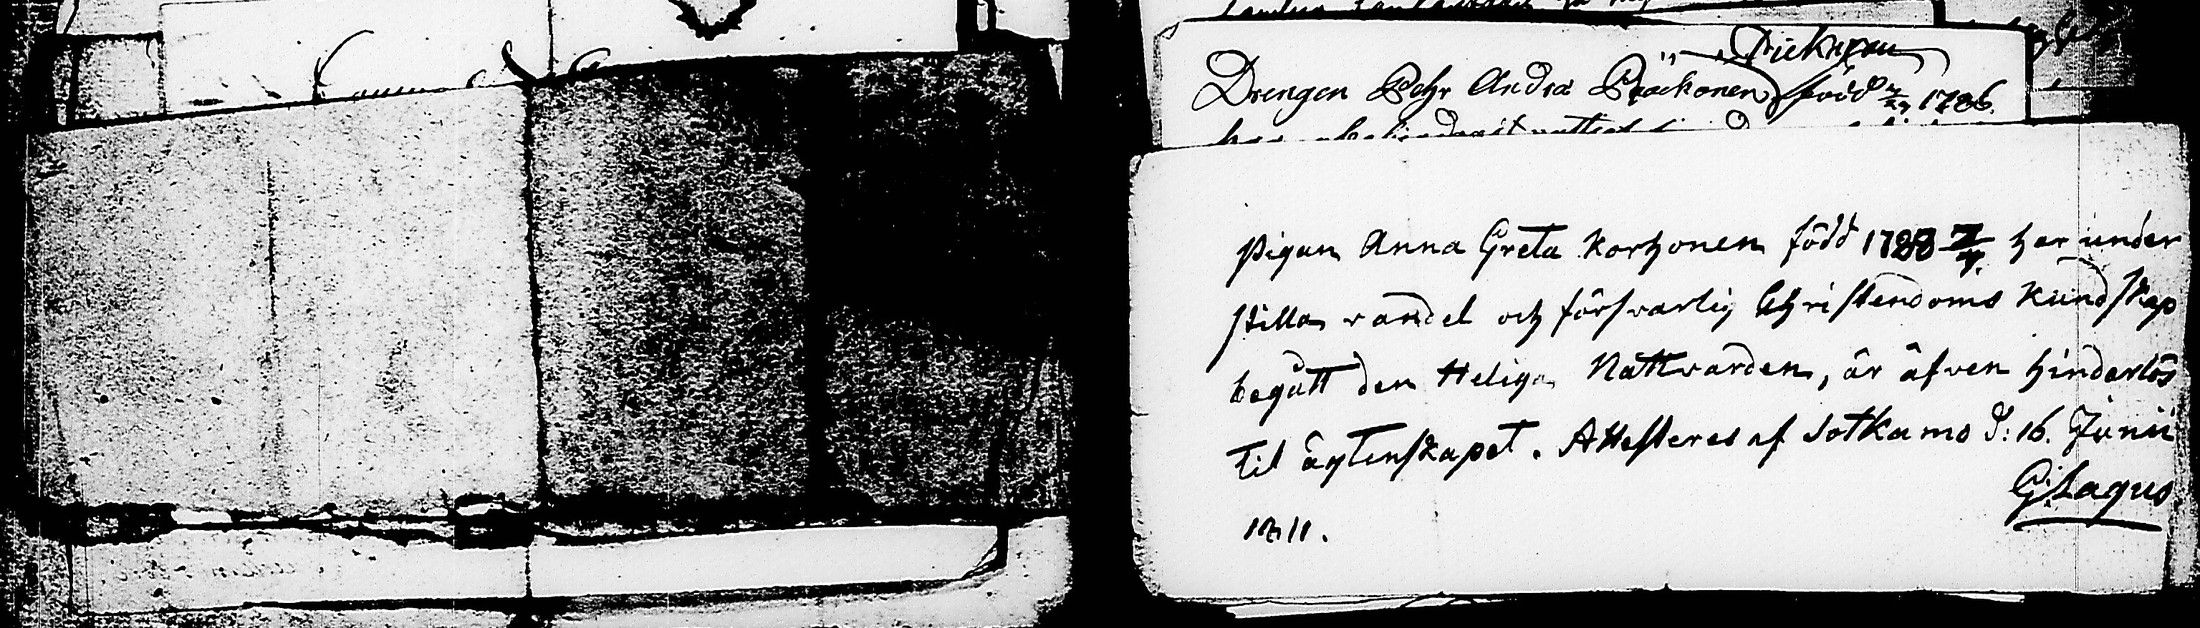 Drengen Pehr Andra Pääkönen född 1786.
Pigan Anna Greta Korhonen född 1788 7/4. har under
stilla vandel och försvarlig Christendoms Kundskap
begått den Heliga Nattvarden, är äfven hinderlös
til ägtenskapet. Attesteras af Sotkamo d: 16. Junii
G. Lagus
1811.